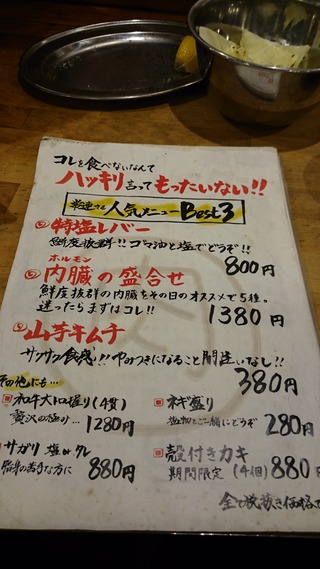 コレを食べないなんて
ハッキリ言ってもったいない!!
人気メニューBest3
特塩レバー
鮮度抜群!!ゴマ油と塩でどうぞ!!
800円
ホルモン
内臓の盛合せ
鮮度抜群の内臓をその日のオススメで5種。
迷ったらまずはコレ!!
1380円
山芋キムチ
サクサク食感!!やみつきになること間違いなし!!
380円
その他にも…
和牛大トロ握り(4貫)
贅沢の極み…
1280円
ネギ盛り
塩物とご一緒にどうぞ
280円
サガリ 塩orタレ
脂身の苦手な方に
880円
殻付きカキ
期間限定(4個)
880円
全て税抜き価格で